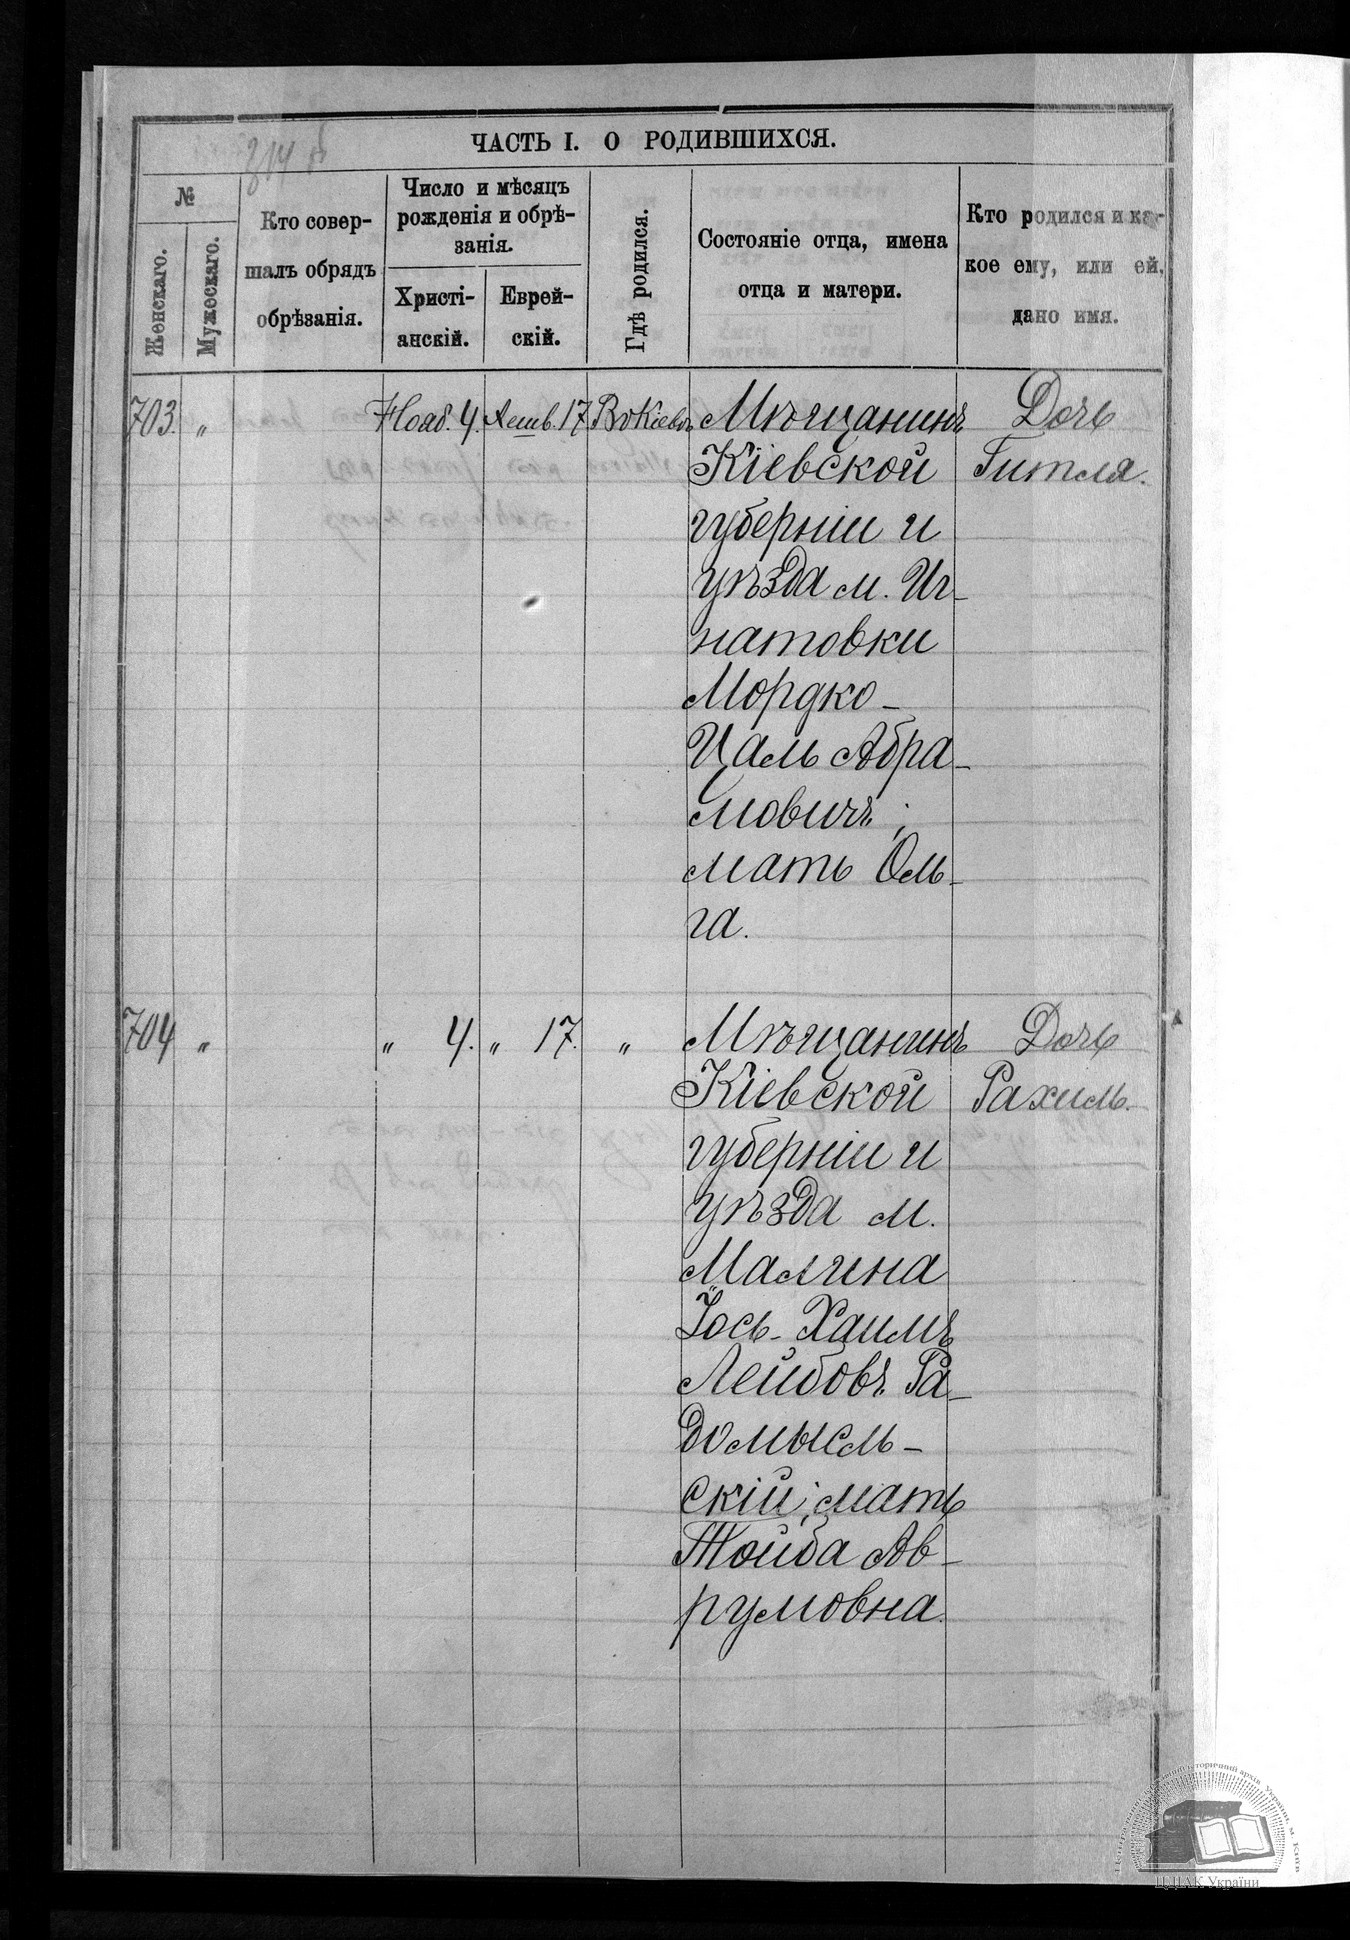 ЧАСТЬ I. О РОДИВШИХСЯ.
№
Женскаго.
Мужескаго.
Кто совер-
шалъ обрядъ
обрѣзанія.
Число и мѣсяцъ
рожденія и обрѣ-
занія.
Христі-
анскій.
Еврей-
скій.
Гдѣ родился.
Состояніе отца, имена
отца и матери.
Кто родился и ка-
кое ему, или ей,
дано имя.
703. „ Нояб. 4. 17 Въ Кіевѣ Мѣщанинъ Дочь
Кіевской Гитля.
губерніи и
уѣзда м. Иг-
натовки
Мордко-
Цаль Абра-
мовичъ;
мать Оль-
га.
704 „ „ 4. „ 17. „ Мѣщанинъ Дочь
Кіевской Рахиль.
губерніи и
уѣзда м.
Малина
Іось-Хаимъ
Лейбовъ Ра-
домысль-
скій; мать
Тойба Ав-
румовна.
ЦДІАК України